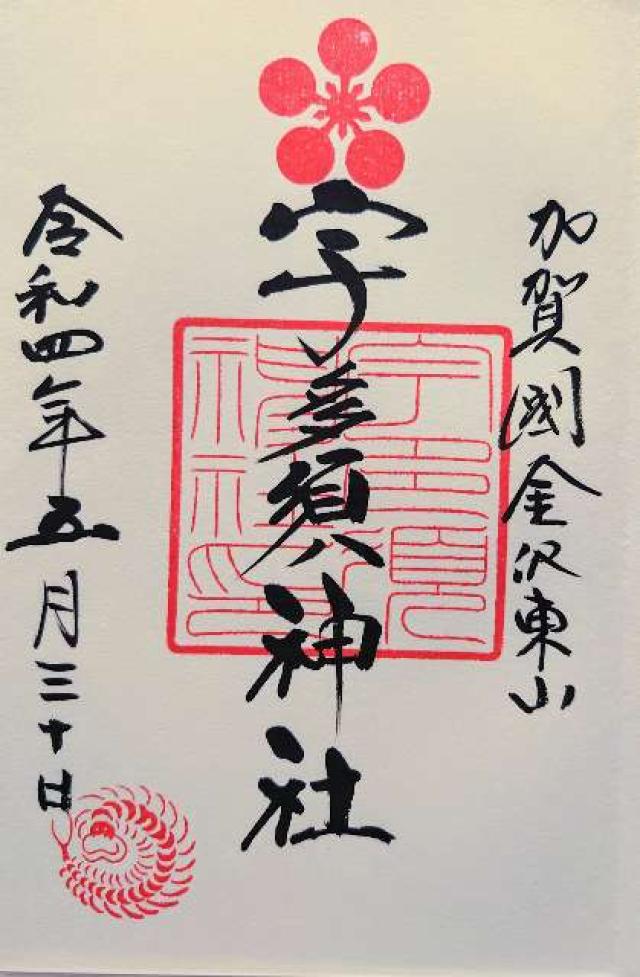 加賀國金沢東山
宇多須神社
令和四年五月三十日